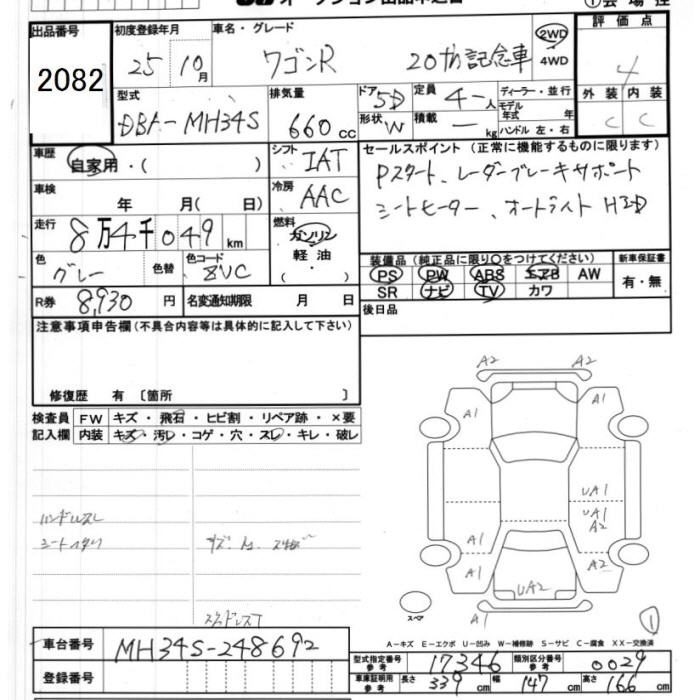 出品番号
2082
初度登録年月
25 10月
車名・グレード
ワゴンR 20th記念車
2WD
4WD
評価点
4
外装 内装
C C
型式
DBA-MH34S
排気量
660 cc
ドア 5D
形状 W
定員 4人
積載 - kg
ディーラー・並行
モデル
年式 年
ハンドル 左・右
車歴
自家用・( )
シフト
IAT
セールスポイント(正常に機能するものに限ります)
Pスタート、レーダーブレーキサポート
シートヒーター、オートライト HID
車検
年 月( 日)
冷房
AAC
走行
8万4千049 km
燃料
ガソリン
軽油
( )
色
グレー
色替
色コード
ZVC
装備品(純正品に限り〇をつけてください)
PS PW ABS エアB AW
SR ナビ TV カワ
新車保証書
有・無
R券 8,930円
名変通知期限 月 日
後日品
注意事項申告欄(不具合内容等は具体的に記入して下さい)
修復歴 有〔箇所 〕
検査員
記入欄
FW キズ・飛石・ヒビ割・リペア跡・×要
内装 キズ・汚レ・コゲ・穴・スレ・キレ・破レ
ハンドルスレ
A2 A2
A1 A1
UA1
UA1
A2
A1 A2
A1 A2
UA2
A1
スペア
1
A-キズ E-エクボ U-凹み W-補修跡 S-サビ C-腐食 XX-交換済
車台番号
MH34S-248692
登録番号
型式指定番号
参考
17346
類別区分番号
参考
0029
車庫証明用
参考
長さ 339 cm 幅 147 cm 高さ 166 cm